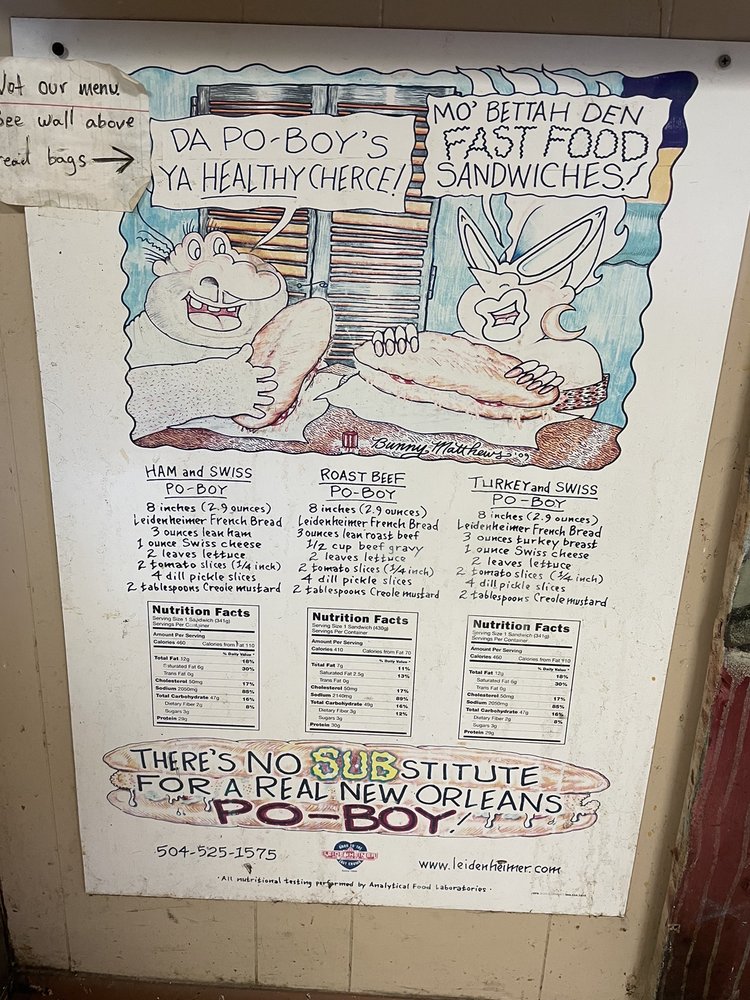 Not our menu.
See wall above
read bags →
DA PO-BOY'S
YA HEALTHY CHERCE!
MO' BETTAH DEN
FAST FOOD
SANDWICHES!
Bunny Matthews '09
HAM and SWISS
PO-BOY
8 inches (2.9 ounces)
Leidenheimer French Bread
3 ounces lean ham
1 ounce Swiss cheese
2 leaves lettuce
2 tomato slices (1/4 inch)
4 dill pickle slices
2 tablespoons Creole mustard
Nutrition Facts
Serving Size 1 Sandwich (341g)
Servings Per Container
Amount Per Serving
Calories 460 Calories from Fat 110
% Daily Value*
Total Fat 12g 18%
Saturated Fat 6g 30%
Trans Fat 0g
Cholesterol 50mg 17%
Sodium 2050mg 85%
Total Carbohydrate 47g 16%
Dietary Fiber 2g 8%
Sugars 3g
Protein 29g
ROAST BEEF
PO-BOY
8 inches (2.9 ounces)
Leidenheimer French Bread
3 ounces lean roast beef
1/2 cup beef gravy
2 leaves lettuce
2 tomato slices (1/4 inch)
4 dill pickle slices
2 tablespoons Creole mustard
Nutrition Facts
Serving Size 1 Sandwich (439g)
Servings Per Container
Amount Per Serving
Calories 410 Calories from Fat 70
% Daily Value*
Total Fat 7g 11%
Saturated Fat 2.5g 13%
Trans Fat 0g
Cholesterol 50mg 17%
Sodium 2140mg 89%
Total Carbohydrate 49g 16%
Dietary Fiber 3g 12%
Sugars 3g
Protein 30g
TURKEY and SWISS
PO-BOY
8 inches (2.9 ounces)
Leidenheimer French Bread
3 ounces turkey breast
1 ounce Swiss cheese
2 leaves lettuce
2 tomato slices (1/4 inch)
4 dill pickle slices
2 tablespoons Creole mustard
Nutrition Facts
Serving Size 1 Sandwich (341g)
Servings Per Container
Amount Per Serving
Calories 460 Calories from Fat 110
% Daily Value*
Total Fat 12g 18%
Saturated Fat 6g 30%
Trans Fat 0g
Cholesterol 50mg 17%
Sodium 2050mg 85%
Total Carbohydrate 47g 16%
Dietary Fiber 2g 8%
Sugars 3g
Protein 29g
THERE'S NO SUBSTITUTE
FOR A REAL NEW ORLEANS
PO-BOY!
504-525-1575
www.leidenheimer.com
·All nutritional testing performed by Analytical Food Laboratories·